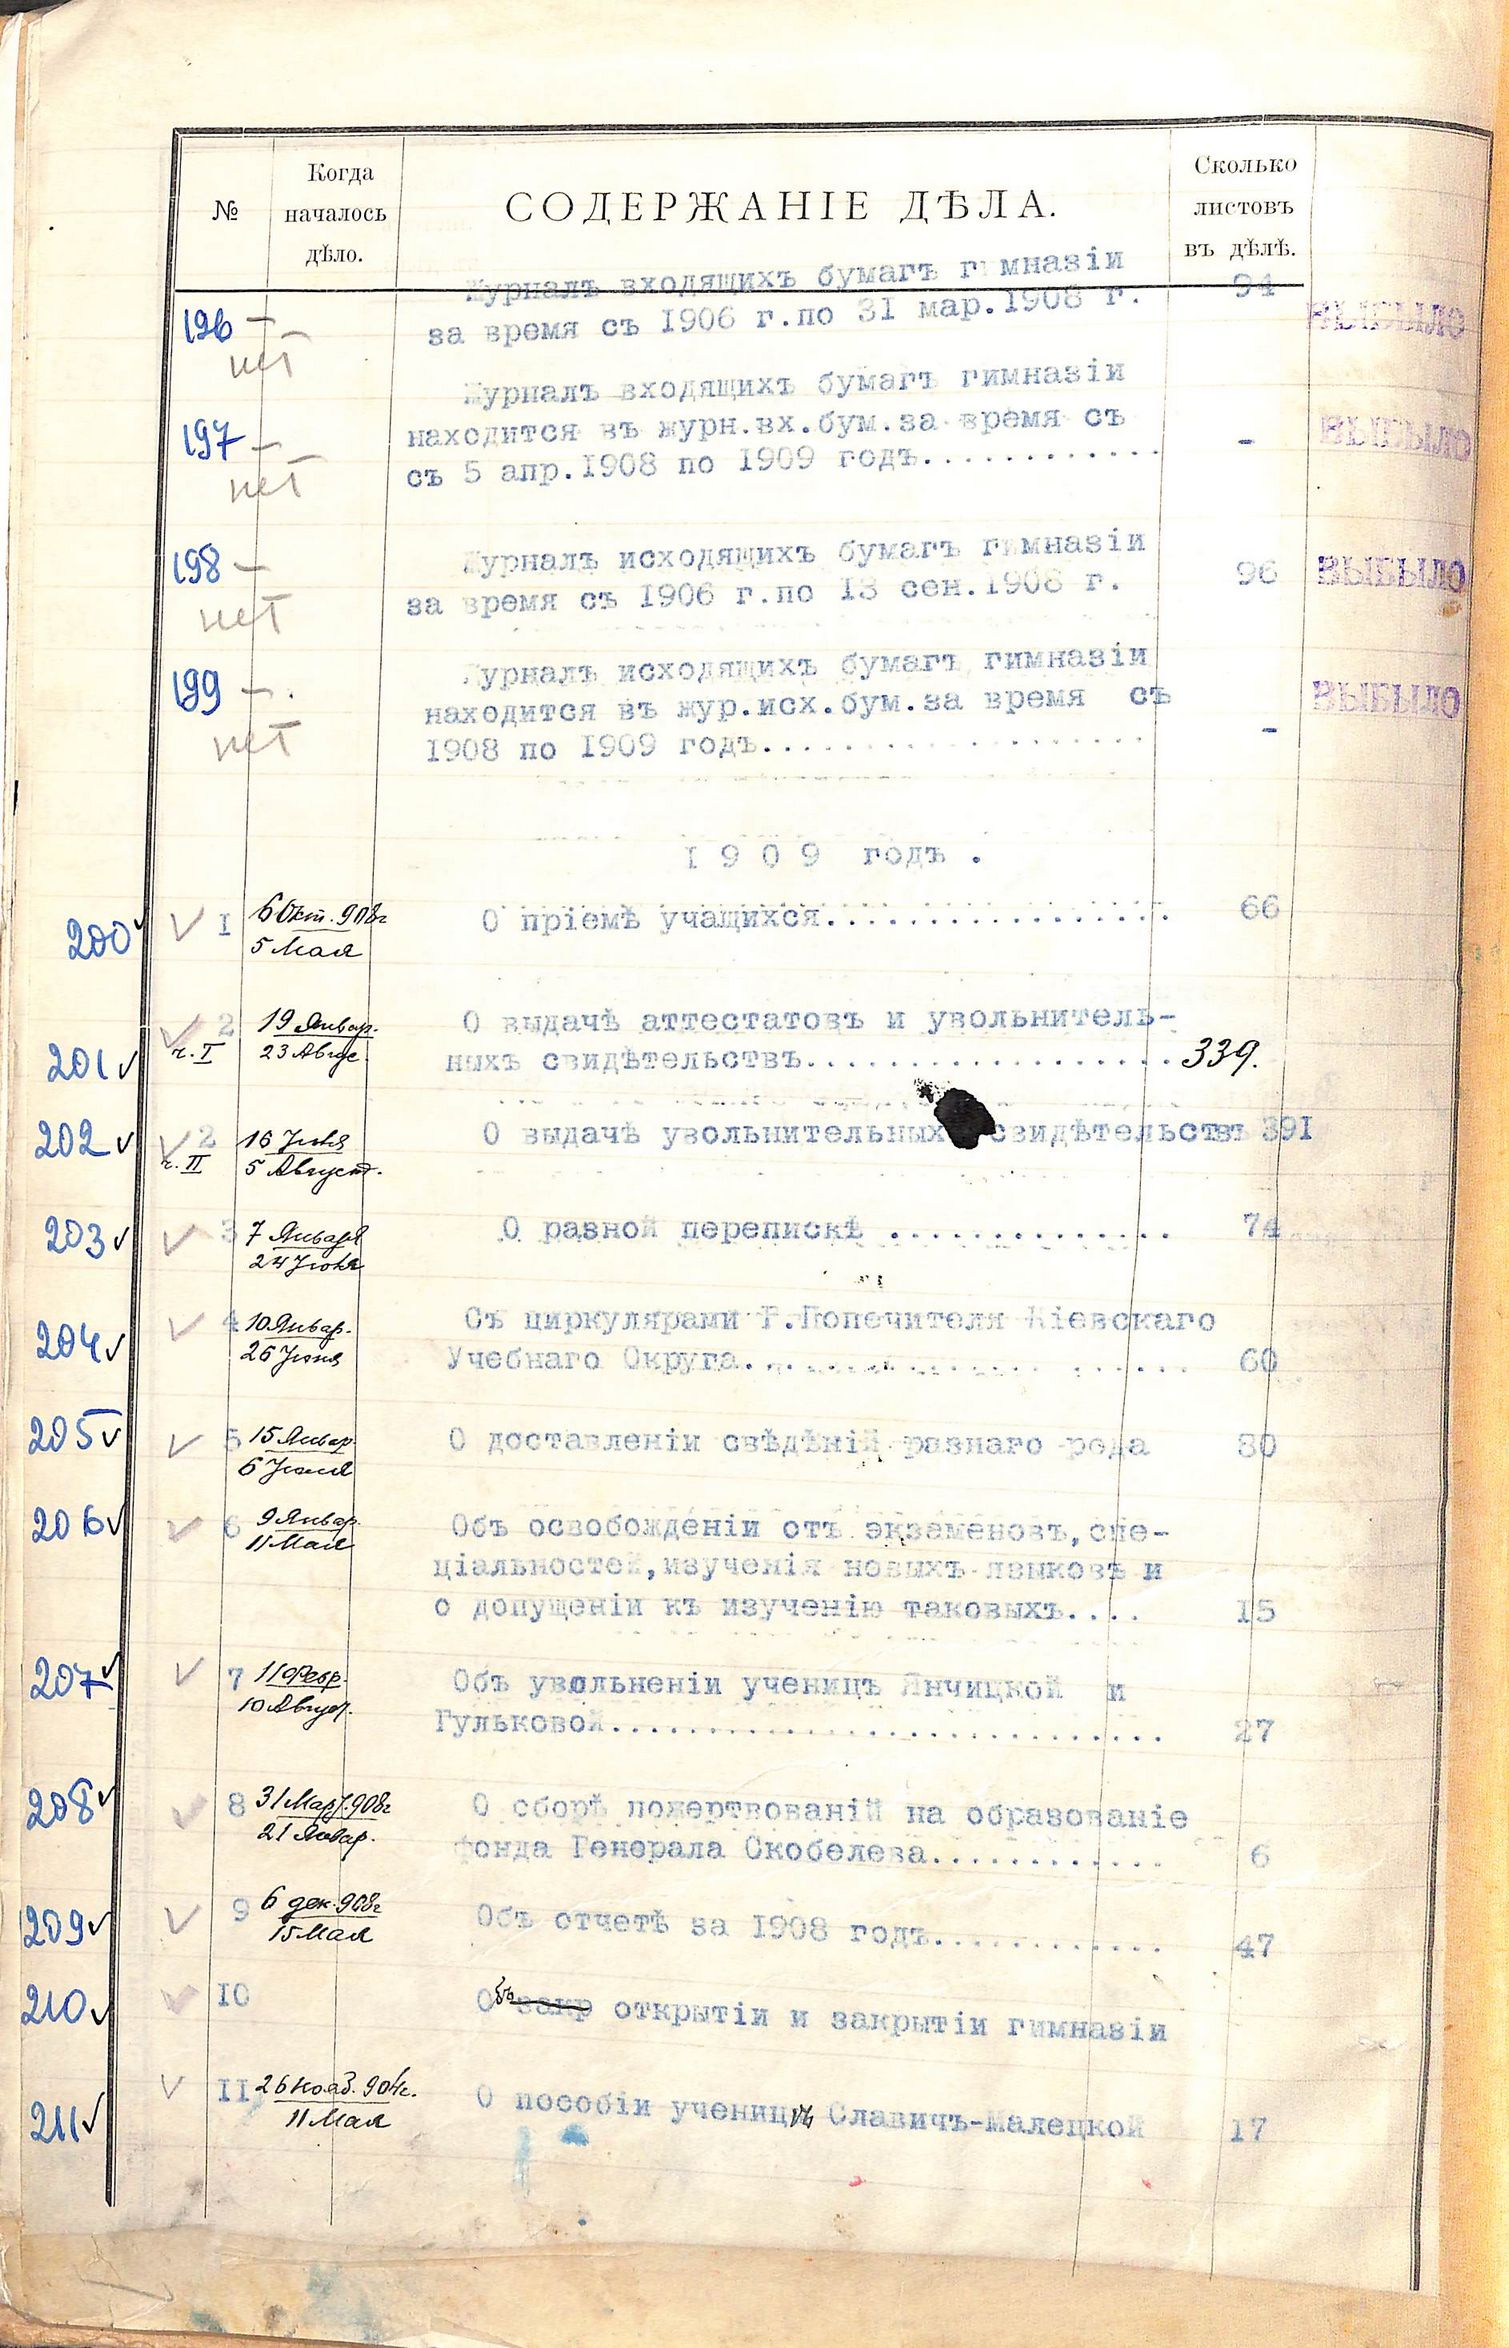 №
Когда
началось
дѣло.
СОДЕРЖАНІЕ ДѢЛА.
Сколько
листовъ
въ дѣлѣ.
Журналъ входящихъ бумагъ гимназіи 94
196 — за время съ 1906 г.по 31 мар.1908 г. ВЫБЫЛО
нет
Журналъ входящихъ бумагъ гимназіи
197 — находится въ журн.вх.бум.за время съ - ВЫБЫЛО
нет съ 5 апр.1908 по 1909 годъ............
198 — Журналъ исходящихъ бумагъ гимназіи 96 ВЫБЫЛО
нет за время съ 1906 г.по 13 сен.1908 г.
199 — Журналъ исходящихъ бумагъ гимназіи ВЫБЫЛО
находится въ жур.исх.бум.за время съ
нет 1908 по 1909 годъ................... -
1909 годъ.
200 I 6 Окт. 908г О пріемѣ учащихся................. 66
5 Мая
2 19 Январ. О выдачѣ аттестатовъ и увольнитель-
201 ч. I 23 Авгус ныхъ свидѣтельствъ.................. 339.
202 2 16 Іюня О выдачѣ увольнительныхъ свидѣтельствъ 391
ч. II 5 Август.
203 3 7 Января О разной перепискѣ .............. 74
24 Іюня
204 4 10 Январ. Съ циркулярами Г.Попечителя Кіевскаго
26 Іюня Учебнаго Округа...................... 60
205 5 15 Январ. О доставленіи свѣдѣній разнаго рода 80
6 Іюня
206 6 9 Январ. Объ освобожденіи отъ экзаменовъ,спе-
11 Мая ціальностей,изученія новыхъ языковъ и
о допущеніи къ изученію таковыхъ.... 15
207 7 11 Февр. Объ увольненіи ученицъ Янчицкой и
10 Август. Гульковой........................... 27
208 8 31 Март. 908г О сборѣ пожертвованій на образованіе
21 Январ. фонда Генерала Скобелева............ 6
209 9 6 дек. 908г Объ отчетѣ за 1908 годъ............ 47
15 Мая
210 10 Объ закр открытіи и закрытіи гимназіи
211 II 26 нояб. 904г. О пособіи ученицѣ Славичъ-Малецкой 17
11 Мая